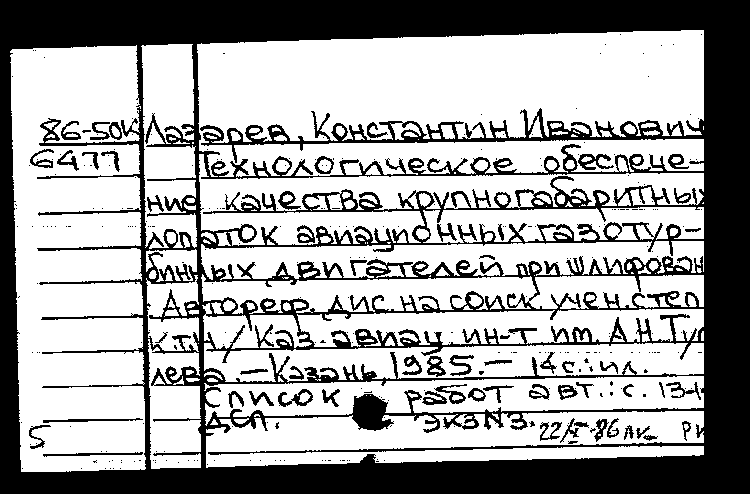 86-50К Лазарев, Константин Иванович
6477 Технологическое обеспече-
ние качества крупногабаритных
лопаток авиационных газотур-
бинных двигателей при шлифован
: Автореф. дис. на соиск. учен. степ
к.т.н. / Каз. авиац. ин-т им. А.Н. Туп
лева. — Казань, 1985. — 14 с.: ил.
Список работ авт.: с. 13-1
ДСП. Экз N3.
5 22/I-86